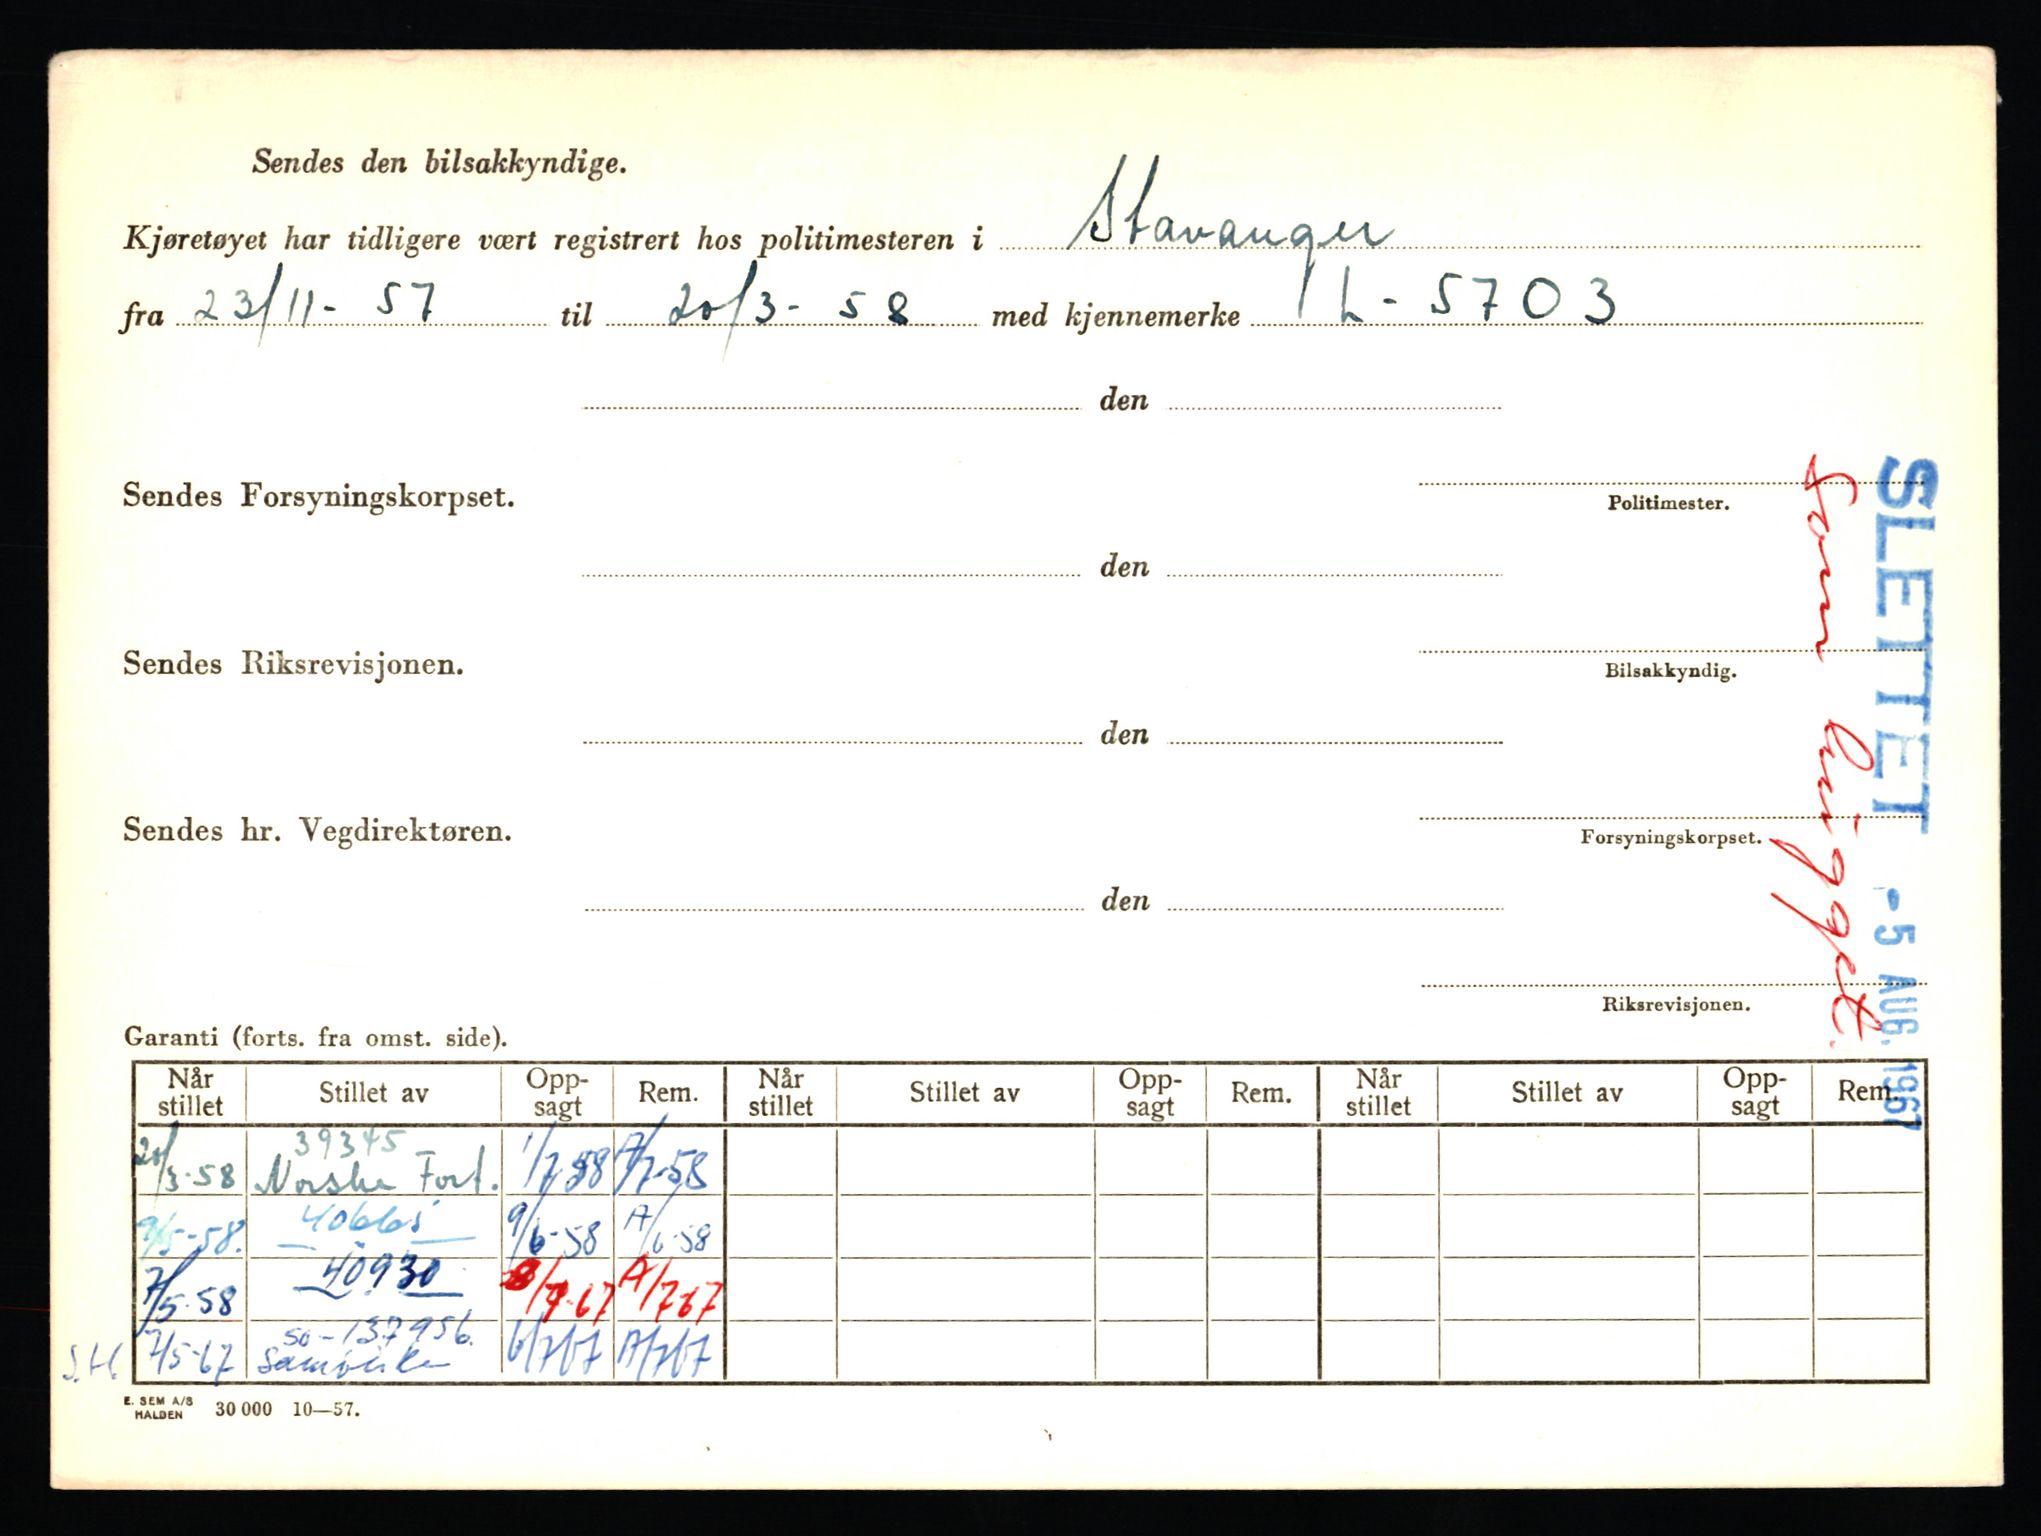 Sendes den bilsakkyndige.
Kjøretøyet har tidligere vært registrert hos politimesteren i Stavanger
fra 23/11- 57 til 20/3- 58 med kjennemerke L - 5703
den
Sendes Forsyningskorpset.
Politimester.
den
Sendes Riksrevisjonen.
Bilsakkyndig.
den
Sendes hr. Vegdirektøren.
Forsyningskorpset.
den
Riksrevisjonen.
SLETTET - 5 AUG. 1967
Som
Garanti (forts. fra omst. side).
Når stillet Stillet av Opp- sagt Rem. Når stillet Stillet av Opp- sagt Rem. Når stillet Stillet av Opp- sagt Rem.
39345
20/3-58 Norske Fort. 1/7-58 A/7-58
9/5-58. 9/6-58 A/6-58
7/5-58 40930 A/7-67
so - 137956.
S.H. 7/5-67 Samvirke 6/7/67 A/7/67
E. SEM A/S
HALDEN 30 000 10—57.